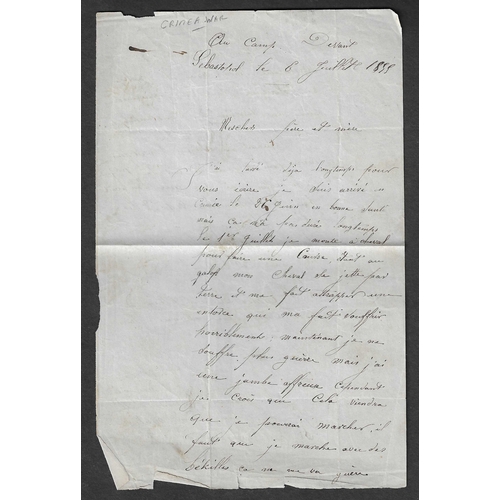 CRIMEA WAR
Au Camp Devant
Sébastopol le 6 Juillet 1855
Mes cher père et mère
déja longtemps pour
vous écrire je suis arrivé
le 27 Juin en bonne santé
mais ca pas duré longtemps
le 1er Juillet je monte a cheval
pour faire une Course étant au
galop mon cheval se jette par
terre et me fait attrapper une
entorce qui me fait souffrir
horriblement, maintenant je ne
souffre plus guère mais j'ai
une jambe affreux cependant
je crois que cela viendra
que je pourrai marcher, il
faut que je marche avec des
békilles ca ne me va guère